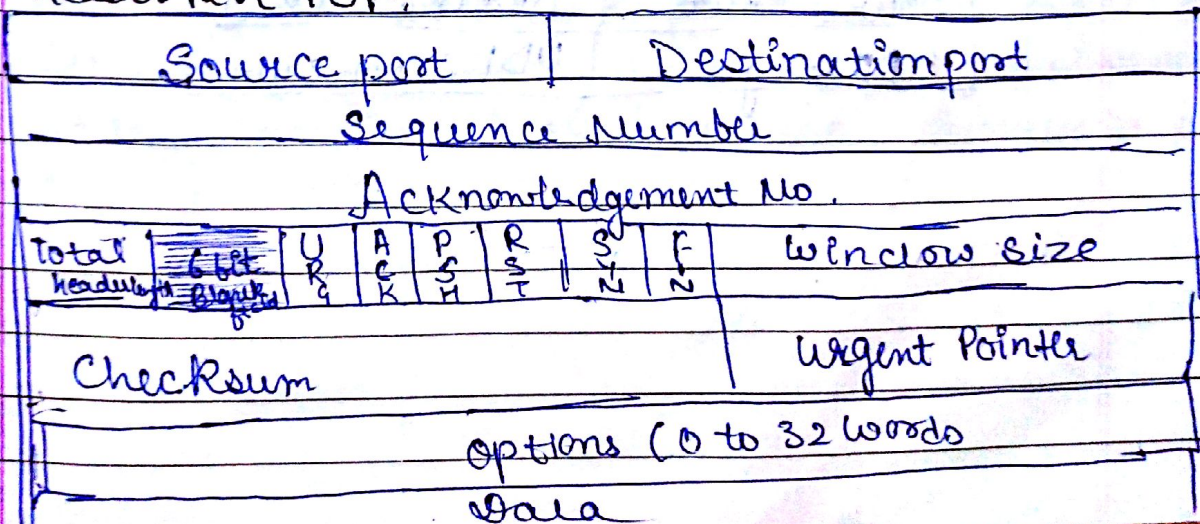 Source port Destination port
Sequence Number
Acknowledgement No.
Total 6 bit URG ACK PSH RST SYN FN Window size
Blank
Checksum Urgent Pointer
options (0 to 32 words
Data